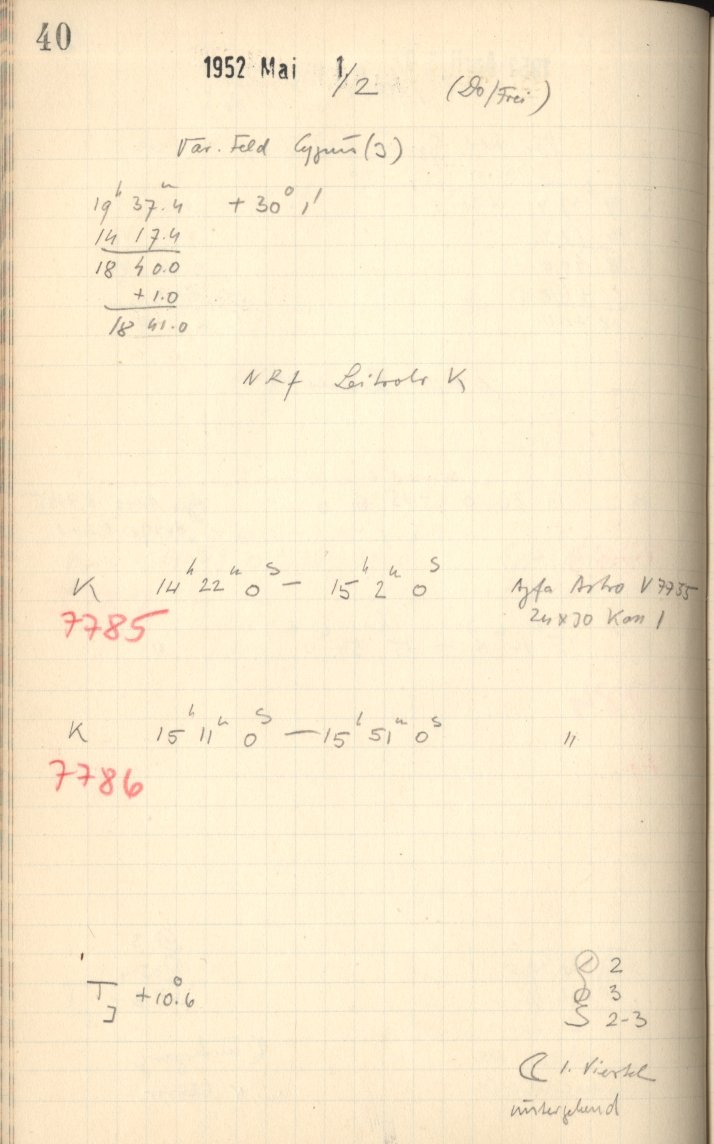 40
1952 Mai 1/2 (Do/Frei)
Var. Feld Cygnus (3)
19h 37m.4 + 30° 1'
14 17.4
18 40.0
+ 1.0
18 41.0
NRf Leitrohr K
K 14h 22m 0s – 15h 2m 0s Agfa Astro V 7755
7785 24x30 Kass 1
K 15h 11m 0s – 15h 51m 0s "
7786
TJ + 10°.6
2
3
S 2-3
1. Viertel
untergehend